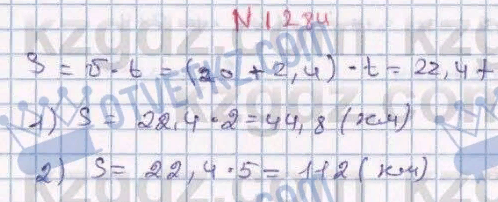 N 1284
S = υ · t = (20 + 2,4) · t = 22,4t
1) S = 22,4 · 2 = 44,8 (км)
2) S = 22,4 · 5 = 112 (км)